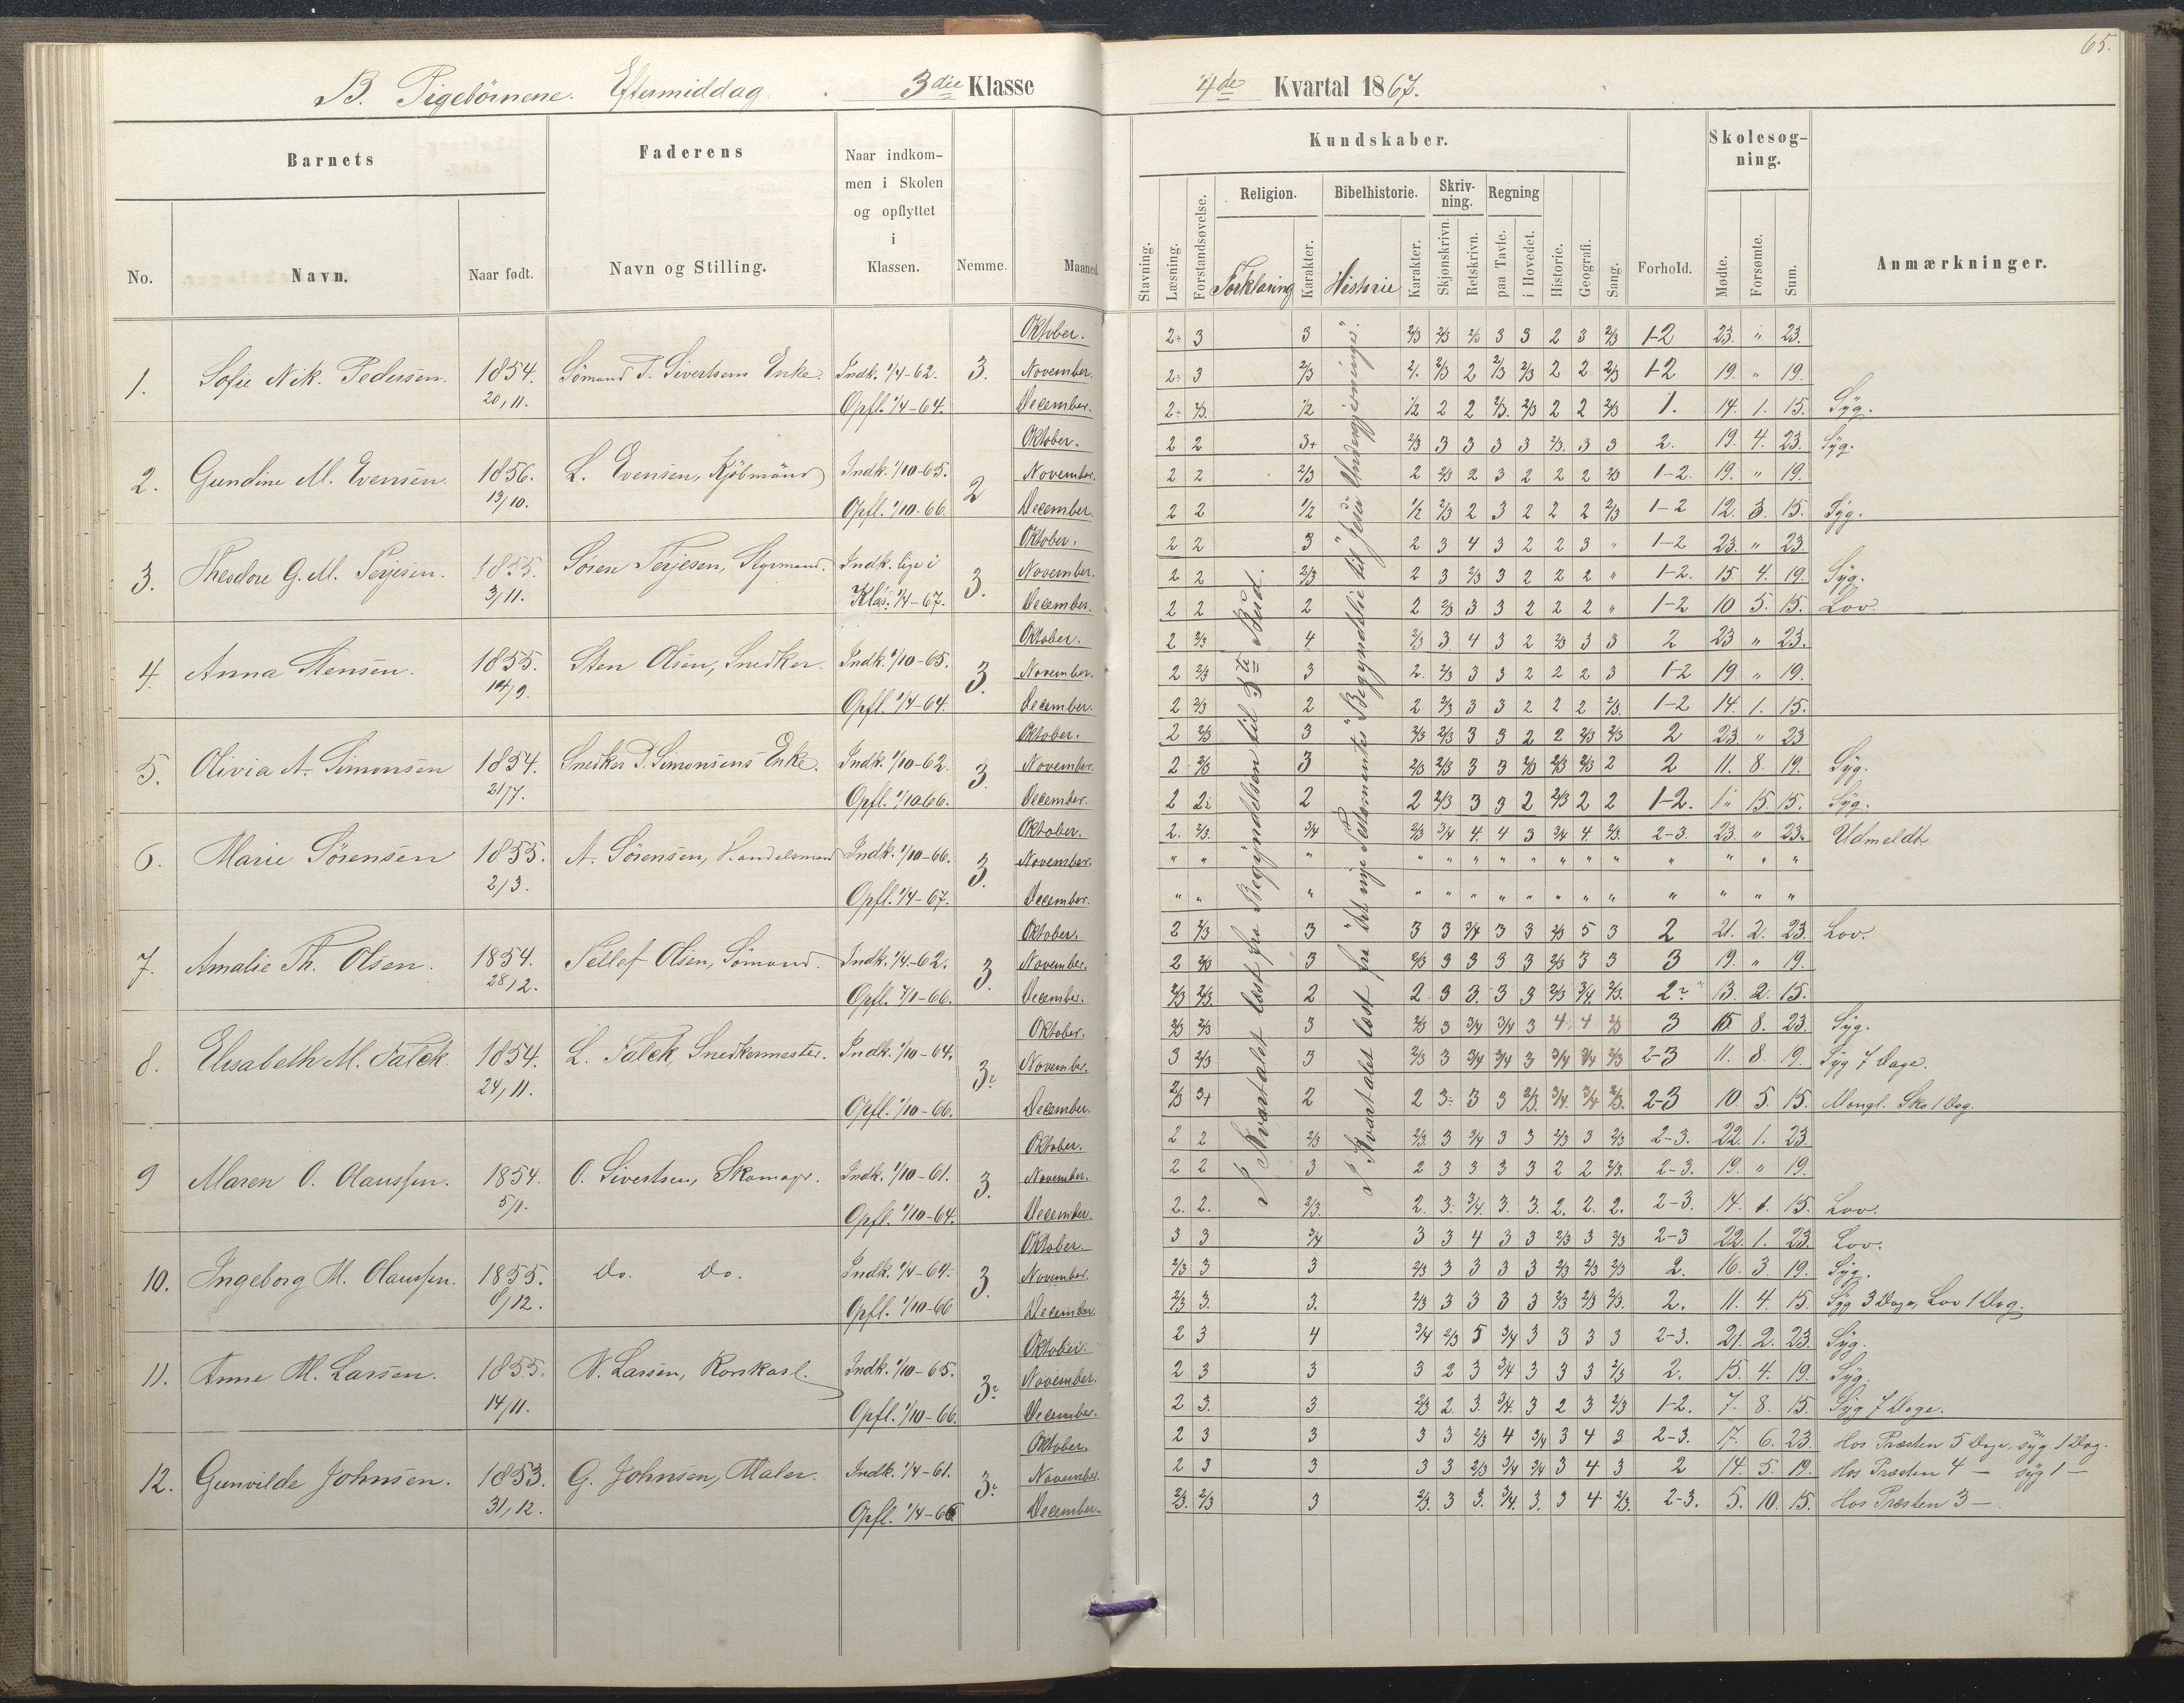 65.
B. Pigebørnene. Eftermiddag. 3die Klasse
4de Kvartal 1867.
Barnets
Faderens
Naar indkommen i Skolen og opflyttet i Klassen.
No.
Navn.
Naar født.
Navn og Stilling.
Nemme.
Maaned.
Kundskaber.
Stavning.
Læsning.
Forstandsøvelse.
Religion.
Forklaring
Karakter.
Bibelhistorie.
Historie
Karakter.
Skrivning.
Skjønskrivn.
Retskrivn.
Regning
paa Tavle.
i Hovedet.
Historie.
Geografi.
Sang.
Forhold.
Skolesøgning.
Mødte.
Forsømte.
Sum.
Anmærkninger.
I Kvartalet læst fra Begyndelsen til 3die Bud.
I Kvartalet læst fra "Det nye Testamente" "Begyndelse til "Jesu Undergjerninger".
1. Sofie Nik. Pedersen. 1854. 20/11. Sömand T. Sivertsens Enke. Indk. 1/4-62. Opfl. 1/4-64. 3.
Oktober. 2÷ 3 3 2/3 2/3 2/3 3 3 2 3 2/3 1-2 23. " 23.
November. 2÷ 3 2/3 2. 2/3 2 2/3 2/3 2 2 2/3 1-2 19. " 19.
December. 2÷ 2/3. 1/2 1/2 2 2 2/3. 2/3 2 2 2/3 1. 14. 1. 15. Syg.
2. Gundine M. Evensen. 1856. 13/10. L. Evensen, Kjöbmand Indk. 1/10-65. Opfl. 1/10.66. 2
Oktober. 2 2 3+ 2/3 3 3 3 3 2/3. 3 3 2. 19. 4. 23. Syg.
November. 2 2 2/3 2 2/3 2 3 2 2 2 2/3 1-2. 19. " 19.
December. 2 2 1/2 1/2 2/3 2 3 2 2 2 2/3 1-2 12. 3. 15. Syg.
3. Theodore G. M. Terjesen. 1855. 3/11. Sören Terjesen, Styrmand. Indk. lige i Klas. 1/4-67. 3.
Oktober. 2 2 3 2 3 4 3 2 2 3 " 1-2 23. " 23.
November. 2 2 2/3 2 3 2/3 3 2 2 2 " 1-2. 15. 4. 19. Syg.
December. 2 2 2 2 2/3 3 3 2 2 2 " 1-2 10 5. 15. Lov.
4. Anna Stensen. 1855. 14/9. Sten Olsen, Snedker. Indk. 1/10-65. Opfl. 1/4-64. 3.
Oktober. 2 2/3 4 2/3 3 4 3 2 2/3 3 3 2 23 " 23.
November. 2 2/3 3 2. 2/3 3 3 2 2 2 3 1-2 19. " 19.
December. 2 2/3 2 2 2/3 3 3 2 2 2 2/3. 1-2 14. 1. 15.
5. Olivia A. Simonsen 1854. 21/7. Snedker P. Simonsens Enke. Indk. 1/10-62. Opfl. 1/10.66. 3.
Oktober. 2 2/3 3 2/3 2/3 3 3 2 2 2/3 2/3 2 23. " 23
November. 2 2/3 3 2/3 2/3 3 3 2/3 2/3 2/3 2 2 11. 8. 19. Syg.
December. 2 2 2 2/3 3 3 2 2/3 2 2 1-2. " 15. 15. Syg.
6. Marie Sörensen 1855. 2/3. A. Sörensen, Handelsmand Indk. 1/10-66. Opfl. 1/4-67. 3.
Oktober. 2. 2/3. 3/4 2/3 3/4 4. 4 3 3/4 4. 2/3. 2-3. 23. " 23. Udmeldt
November. " " " " " " " " " " " " " " "
December. " " " " " " " " " " " " " " "
7. Amalie Th. Olsen. 1854. 28/2. Tellef Olsen, Sömand. Indk. 1/4-62. Opfl. 7/1-66. 3.
Oktober. 2 2/3 3 3 3 3/4 3 3 2/3 5 3 2 21. 2. 23. Lov.
November. 2 2/3 3 2/3 3 3 3 3 2/3 3 3 3 19. " 19.
December. 2/3 2/3. 2 2 3 3. 3 3 2/3 3/4. 2/3. 2 13. 2. 15.
8. Elisabeth M. Falck. 1854. 24/11. L. Falck, Snedkermester. Indk. 1/10-64. Opfl. 1/10-66. 3
Oktober. 2/3 2/3 3 2/3 3 3/4 3/4 3 4 4 2/3 3 15. 8. 23. Syg.
November. 3 2/3 3 2/3 3 3/4 3/4 3 3/4 3/4 2/3 2-3 11. 8. 19. Syg 7 Dage.
December. 2/3 3+ 2 2 3÷ 3 3 2/3. 3/4. 3/4 2/3. 2-3 10. 5. 15. Mangl. Sko 1 Dag.
9 Maren O. Olaussen. 1854. 5/1. O. Sivertsen, Skomagr. Indk. 1/10-61. Opfl. 1/10-64. 3.
Oktober. 2 2 2/3 2/3. 3 3/4 3 3 2/3 3 2/3 2-3. 22. 1. 23.
November. 2 2 3 2 3 3 3 3 2 2 2/3. 2-3. 19. " 19.
December. 2. 2. 2/3. 2. 3. 3/4. 3. 3. 2. 2. 2. 2-3. 14. 1. 15. Lov.
10. Ingeborg M. Olaussen. 1855. 8/12. Do. Do. Indk. 1/4-64. Opfl. 1/10-66 3.
Oktober. 3 3 3/4 3 3 4 3 3 2/3 3 2/3 2-3 22. 1. 23. Lov.
November. 2/3 3 3 2/3 3 3 3 3 2/3 2/3 2/3 2. 16. 3. 19. Syg.
December. 2/3 3. 3. 2/3 3 3 3 3 2/3 2/3 2/3. 2. 11. 4. 15. Syg 3 Dage, Lov 1 Dag.
11. Anne M. Larsen. 1855. 14/11. N. Larsen, Rorskarl. Indk. 1/10-65. Opfl. 1/10-66. 3
Oktober. 2 3 4 3/4 2/3 5 3/4 3 3 3 3 2-3. 21. 2. 23. Syg.
November. 2 3 3 3 2 3 3/4 3 3 3 2/3 2. 15. 4. 19. Syg.
December. 2 3. 3. 2/3 2 3. 3/4. 3 2 3 2/3 1-2. 7. 8. 15. Syg 7 Dage.
12. Gunvilde Johnsen. 1853. 31/12. G. Johnsen, Maler. Indk. 1/4-61. Opfl. 1/4-66 3
Oktober. 2 3 3 3 3 2/3 4 3/4 3 4 3 2-3. 17. 6. 23. Hos Præsten 5 Dage, syg 1 Dag.
November. 2 3 3 3 3 2/3 3/4 3/4 3 4 3 2 14. 5. 19. Hos Præsten 4 — syg 1 —
December. 2/3. 2/3 3 2/3. 3 3. 3/4. 3. 3 4 2/3. 2-3. 5. 10. 15. Hos Præsten 3 —.